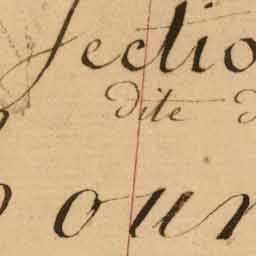 Sectio
dite d
our